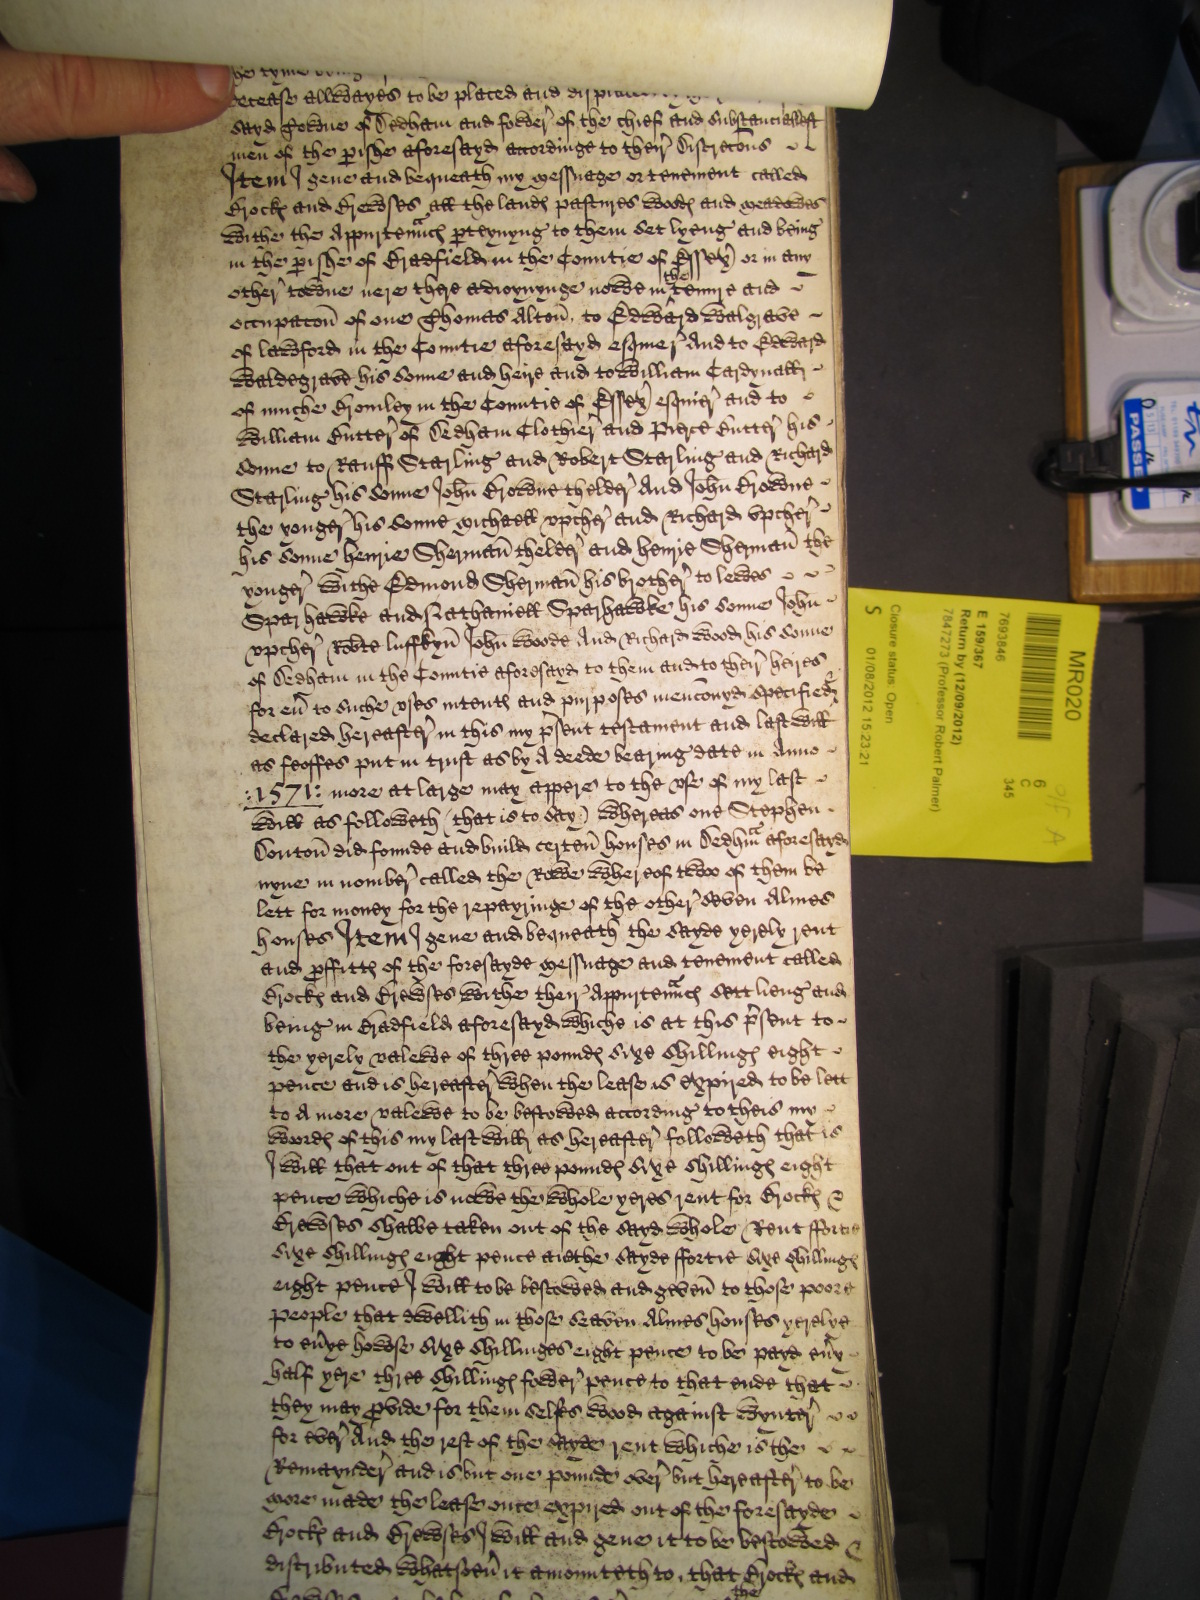 the tyme being
decease allwayes to be placed and
sayd Towne of Dedham and fower of the chief and substanciallest
men of the pishe aforesayd accordinge to their discrecons
Item I geve and bequeath my messuage or tenement called
Crock and Crewses all the land pastures wood and meadowes
withe the Appurtennc pteynyng to them set lyeng and being
in the pishe of Bradfield in the Countie of Essex or in any
other towne nere there adioynynge nowe in the tenure and
occupacon of one Thomas Alton, to Edward Walgrave
of lawford in the Countie aforesayd esquier And to Edward
Waldegrave his sonne and heire and to William Cardynall
of muche Bromley in the Countie of Essex esquier and to
William Butter of Dedham Clothier and Pierce Butter his
sonne to Rauff Starling and Robert Starling and Richard
Starling his sonne John Browne thelder And John Browne
the yonger his sonne Michaell upcher and Richard Upcher
his sonne henrie Sherman thelder and henrie Sherman the
yonger withe Edmond Sherman his brother to lewes
Sparhawke and Nathaniell Sparhawke his sonne John
upcher Robte luffkyn John Woode And Richard Wood his sonne
of Dedham in the Countie aforesayd to them and to their heires
for eu to suche uses intent and purposes menconyd specified
declared hereafter in this my psent testament and last will
as feoffes put in trust as by A deede bearing date in Anno
:1571: more at large may appere to the use of my last
will as followeth (that is to say) Whereas one Stephen
Donton did founde and build certen houses in Dedhm aforesayd
nyne in nomber called the Rowe Whereof twoo of them be
lett for money for the repayringe of the other seven Almes
houses Item I geve and bequeath the sayde yerely rent
and pffitt of the foresayde messuage and tenement called
Crock and Crewses withe their Appurtennc sett lieng and
being in Bradfield aforesayd whiche is at this psent to
the yerely valewe of three pound sixe shilling eight
pence and is hereafter when the lease is expired to be lett
to A more valewe to be bestowed according to theis my
word of this my last will as hereafter followeth that is
I will that out of that three pound sixe shilling eight
pence whiche is nowe the whole yeres rent for Crock &
Crewses shalbe taken out of the sayd whole Rent ffortie
sixe shilling eight pence the sayde ffortie sixe shilling
eight pence I will to be bestowed and geven to those poore
people that dwellith in those seaven Almes houses yerelye
to eu'ye howse sixe shillinges eight pence to be payd eu'y
half yere three shilling fower pence to that ende that
they may pvide for them selfes wood against wynter
for ever And the rest of the sayde rent whiche is the
Remaynder and is but one pounde over but hereafter to be
more made the lease once expired out of the foresayde
Crock and Crewses I will and geve it to be bestowed &
distributed whatsoeu' it amounteth to, that Crock and
the
PASSED
MR020
7693846
6
C
345
E 159/367
Return by (12/09/2012)
7847273 (Professor Robert Palmer)
Closure status: Open
S 01/08/2012 15:23:21